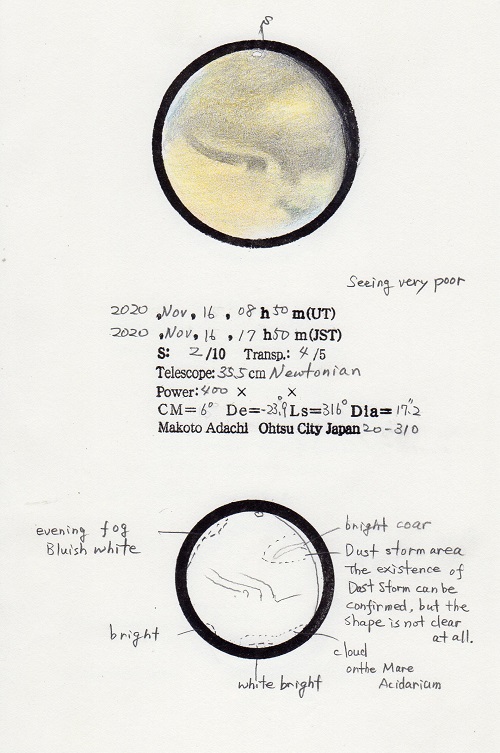 S
Seeing very poor
2020 , Nov, 16 , 08 h 50 m(UT)
2020 , Nov, 16 , 17 h 50 m(JST)
S: 2 /10 Transp.: 4 /5
Telescope: 35.5 cm Newtonian
Power: 400 × , ×
CM= 6° De= -23.9° Ls= 316° Dia= 17.″2
Makoto Adachi Ohtsu City Japan 20-310
evening fog
Bluish white
bright coar
Dust storm area
The existence of
Dast Storm can be
confirmed, but the
shape is not clear
at all.
bright
cloud
on the Mare
Acidarium
white bright